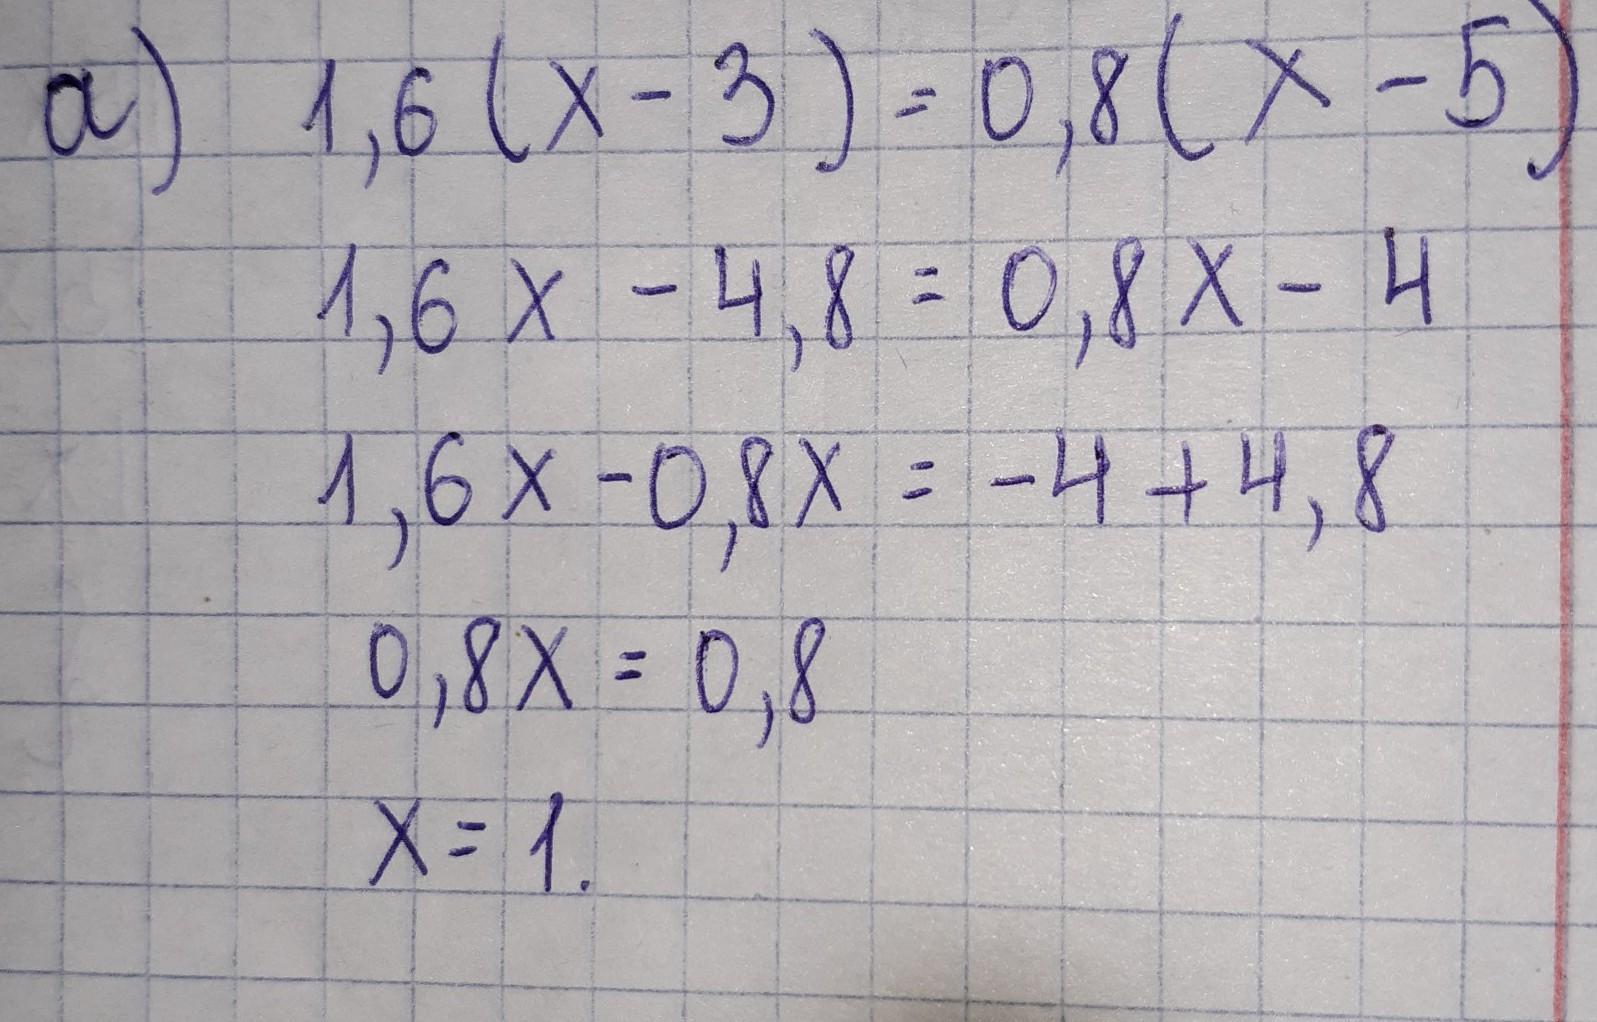 а) 1,6(x-3)=0,8(x-5)
1,6x-4,8=0,8x-4
1,6x-0,8x=-4+4,8
0,8x=0,8
x=1.